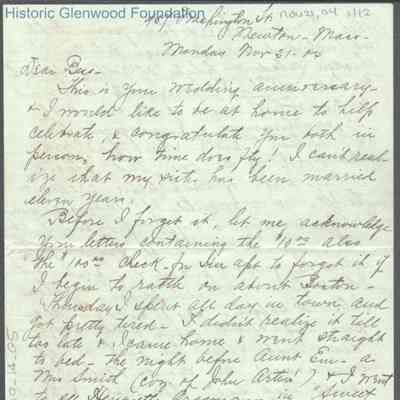 Historic Glenwood Foundation
Nov 21, 04 1/12
Washington St.
Newton - Mass -
Monday Nov 21 - 04
Dear Bess -
This is your wedding anniversary -
& I would like to be at home to help
celebrate, & congratulate you both in
person, how time does fly! I can't real
ize that my sister has been married
eleven years.
Before I forget it, let me acknowledge
your letters containing the $10.00 also
the $100.00 check - I'm apt to forget it if
I begin to rattle on about Boston -
Thursday I spent all day in town, and
got pretty tired - I didn't realize it till
too late & I came home & went straight
to bed - The night before Aunt Em - a
Mrs Smith (coz of John Artus!) & I went
to see Henrietta Crosman in "Sweet